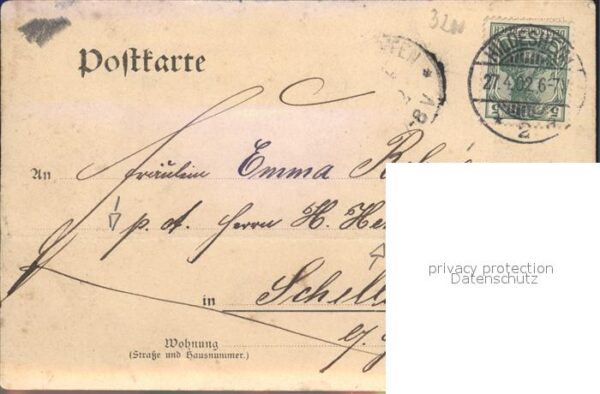 32
Postkarte
HILDESHEIM
27.4.02.6-7
2
* 8-9V
An Fräulein Emma
p. A. Herrn H.
in Schell
Wohnung
(Straße und Hausnummer.)
privacy protection
Datenschutz